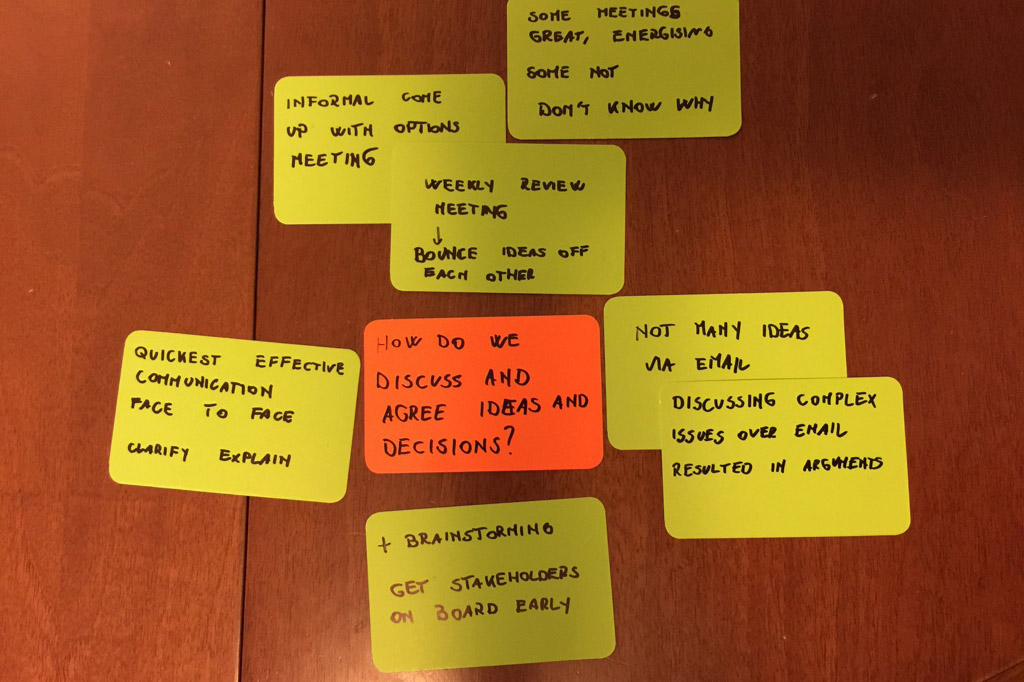 SOME MEETINGS
GREAT, ENERGISING
SOME NOT
DON'T KNOW WHY
INFORMAL COME
UP WITH OPTIONS
MEETING
WEEKLY REVIEW
MEETING
↓
BOUNCE IDEAS OFF
EACH OTHER
QUICKEST EFFECTIVE
COMMUNICATION
FACE TO FACE
CLARIFY EXPLAIN
HOW DO WE
DISCUSS AND
AGREE IDEAS AND
DECISIONS?
NOT MANY IDEAS
VIA EMAIL
DISCUSSING COMPLEX
ISSUES OVER EMAIL
RESULTED IN ARGUMENTS
+ BRAINSTORMING
GET STAKEHOLDERS
ON BOARD EARLY